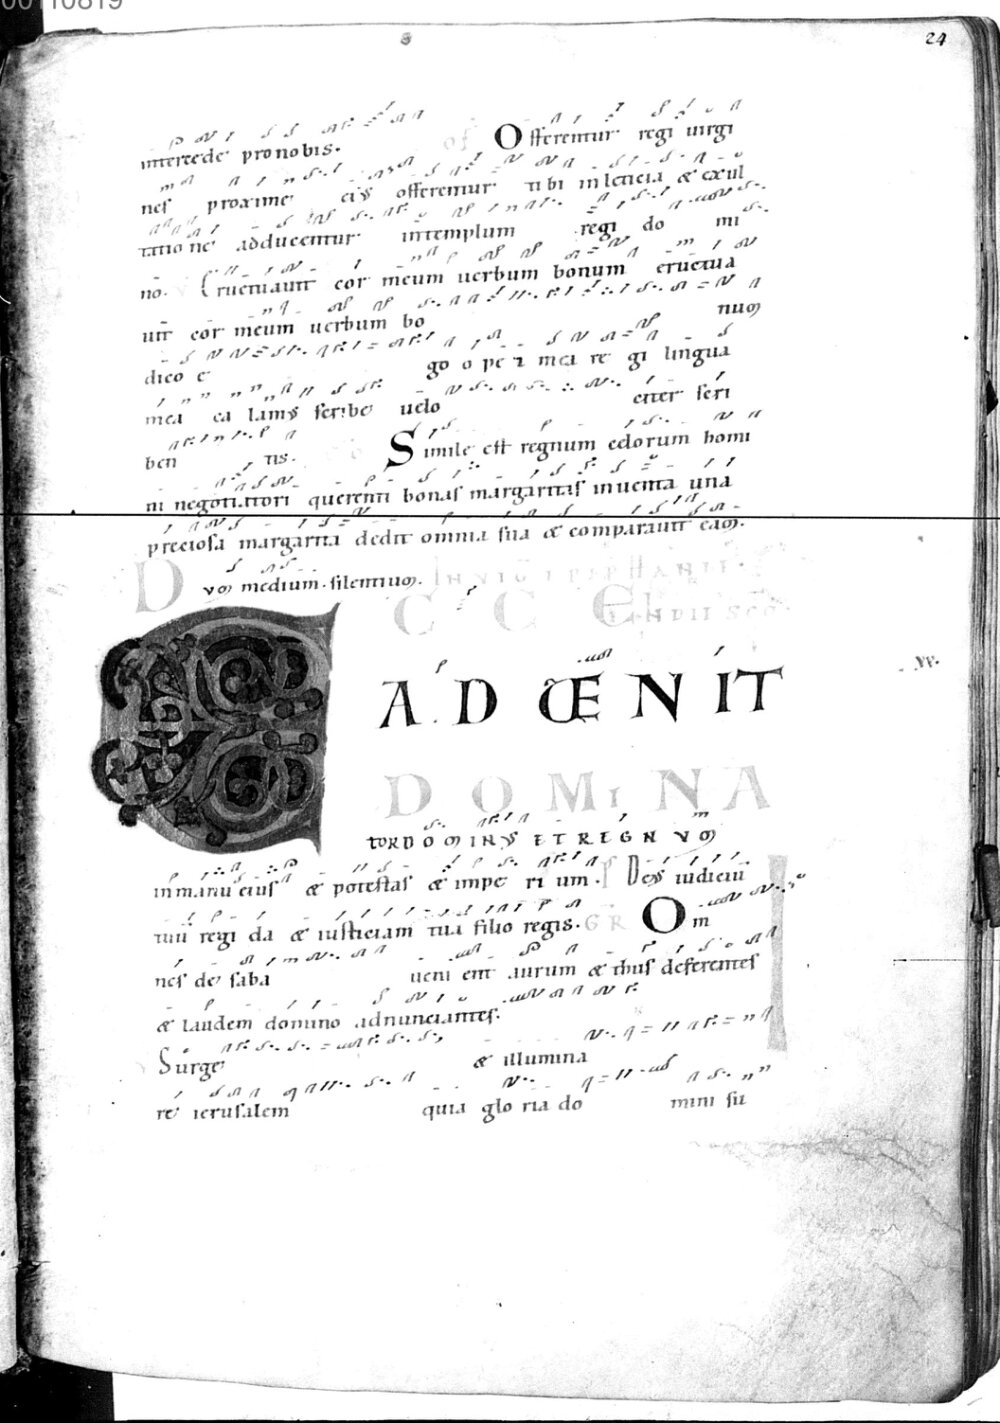 00110819
24
intercede pro nobis. of Offerentur regi uirgi
nes proxime eius offerentur tibi in leticia & exul
tatione adducentur in templum regi do mi
no. Eructauit cor meum uerbum bonum eructua
uit cor meum uerbum bo num
dico e go opera mea regi lingua
mea calamus scribe uelo citer scri
ben tis. Co Simile est regnum celorum homi
ni negotiatori querenti bonas margaritas inuenta una
preciosa margarita dedit omnia sua & comparauit eam.
Dum medium silentium.
ECCE
ADUENIT
DOMINA
TOR DOMINUS ET REGNUM
in manu eius & potestas & imperium. Deus iudiciū
tuū regi da & iusticiam tuā filio regis. GR Om
nes de saba ueni ent aurum & thus deferentes
& laudem domino adnunciantes.
Surge & illumina
re ierusalem quia gloria do mini su